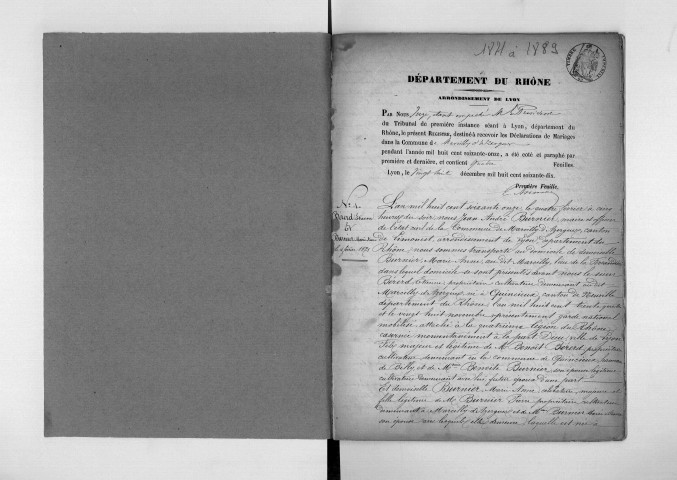 1871 à 1889
DÉPARTEMENT DU RHÔNE
ARRONDISSEMENT DE LYON
PAR NOUS Juge, étant empêché Mr le Président
du Tribunal de première instance séant à Lyon, département du
Rhône, le présent REGISTRE, destiné à recevoir les Déclarations de Mariages
dans la Commune de Marcilly d'Azergues
pendant l'année mil huit cent soixante-onze, a été coté et paraphé par
première et dernière, et contient Feuilles
Lyon, le vingt décembre mil huit cent soixante-dix.
Première Feuille.
N° 1.
Et
Burnier
L'an mil huit cent soixante onze, le quatre février à cinq
heures du soir, nous Jean André Burnier, maire et officier
de l'état civil de la Commune de Marcilly d'Azergues, canton
de Limonest, arrondissement de Lyon, département du
Rhône, nous sommes transporté au domicile de demoiselle
Burnier Marie Anne, au dit Marcilly, lieu de
dans lequel domicile se sont présentés devant nous le sieur
Bererd Etienne, propriétaire cultivateur demeurant au dit
Marcilly d'Azergues, né à Quincieux, canton de Neuville
département du Rhône, l'an mil huit cent quatre
et le vingt huit novembre, présentement garde national
mobilisé, attaché à la quatrième légion du Rhône,
caserné momentanément à la part Dieu, ville de Lyon
Fils majeur et légitime de Mr Benoît Bererd, propriétaire
cultivateur demeurant en la commune de Quincieux, hameau
de Billy et de Mme Benoîte Burnier, son épouse légitime
cultivatrice demeurant avec lui, futur époux d'une part
Et demoiselle Burnier Marie Anne, mineure et
fille légitime de Mr Burnier propriétaire cultivateur
demeurant à Marcilly d'Azergues et de Mme Burnier
son épouse avec lesquels elle demeure, laquelle est née à